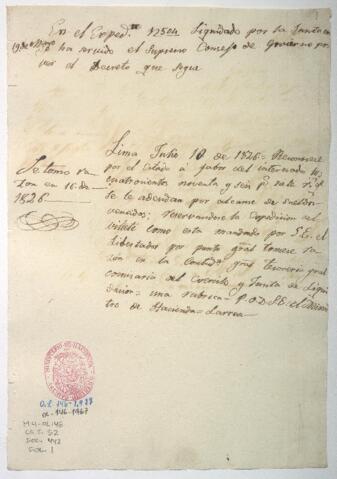 En el Exped.te N.2504 Liquidado por la Junta en
19 de Mayo ha servido el Supremo Consejo de Govierno pro
veir el Decreto que sigue
Lima Julio 10 de 1826 = Reconocese
por el Estado á fabor del interesado
cuatrocientos noventa y seis p.s
se le adeudan por alcance de sueldos
vencidos; reservandose la expedicion del
villete como esta mandado por S.E. el
Libertador por punto gral tomese ra
zon en la Contad.a gral tesoreria gral
comisaria del Exercito y Junta de Liqui
dacion = una rubrica = P.O.D.S.E. el Minis
tro de Hacienda = Larrea
Se tomo ra
zon en 16 de
1826
O.L. 146-1,988
OL-146-1967
M.H-OL 146
CAJ. 52
DOC. 442
FOL. 1